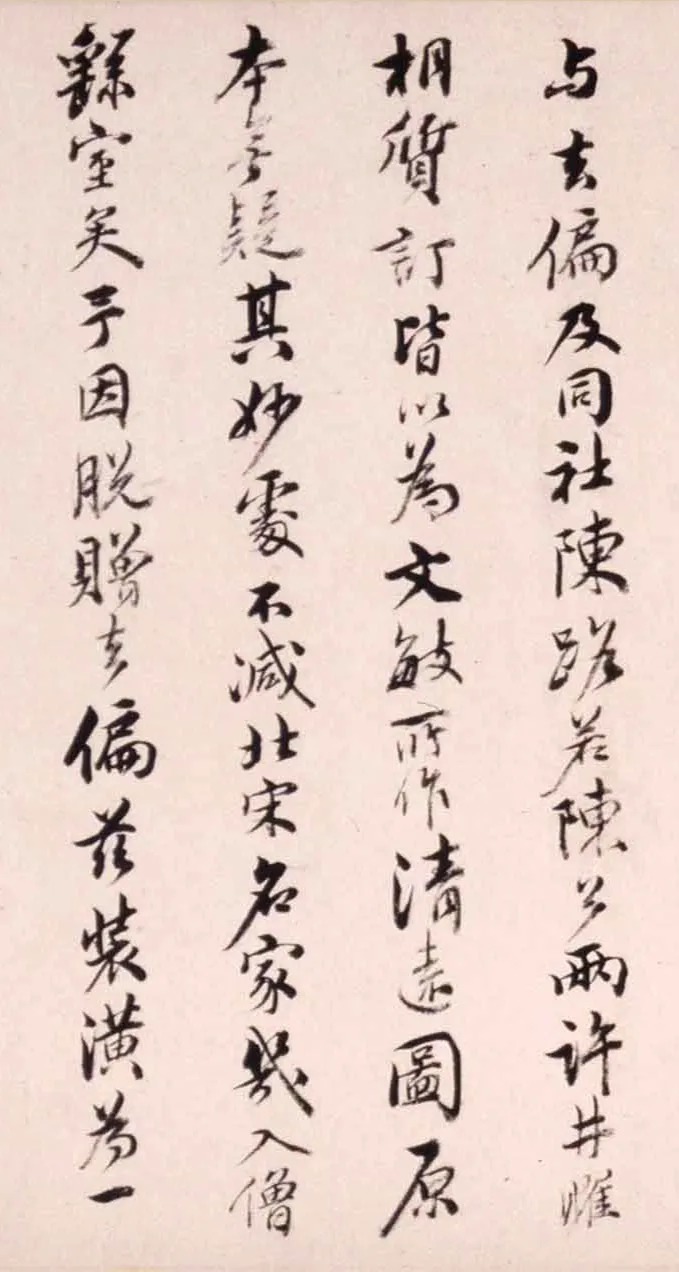 与玄偏及同社陳路若陳公兩許井睢
相質訂皆以為文敏所作清遠圖原
本無疑其妙處不減北宋名家幾入僧
繇室矣予因脫贈玄偏茲裝潢為一